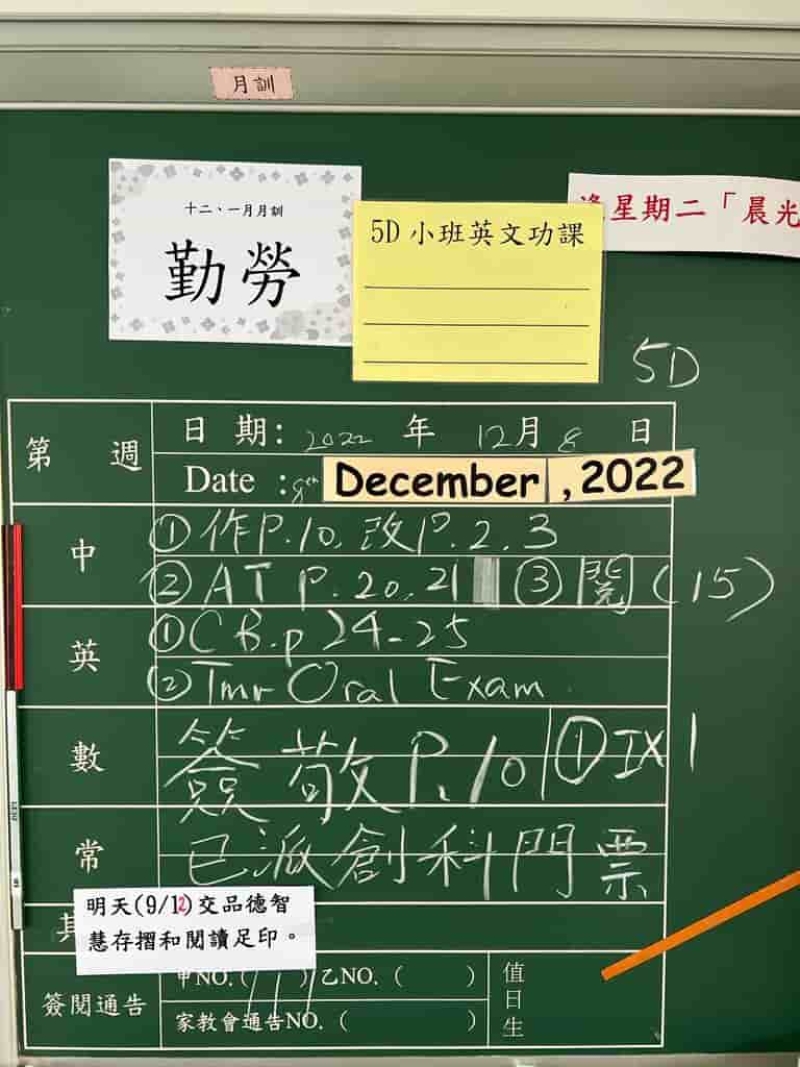 月訓
十二、一月月訓
勤勞
5D 小班英文功課
逢星期二「晨光
5D
第 週
日 期: 2022 年 12月 8 日
Date : 8th December , 2022
中
①作P.10, 改P.2.3
②AT P.20,21 ③閱(15)
英
①CB.p 24-25
②Tmr Oral Exam
數
簽 敬P.10 ①IX1
常
已派創科門票
明天(9/12)交品德智
慧存摺和閱讀足印。
簽閱通告
甲NO.( ) 乙NO. ( )
家教會通告NO. ( )
值日生